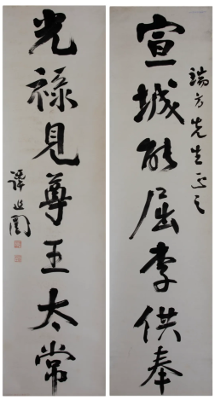 宣城能屈李供奉
端方先生正之
光祿見尊王太常
譚延闓